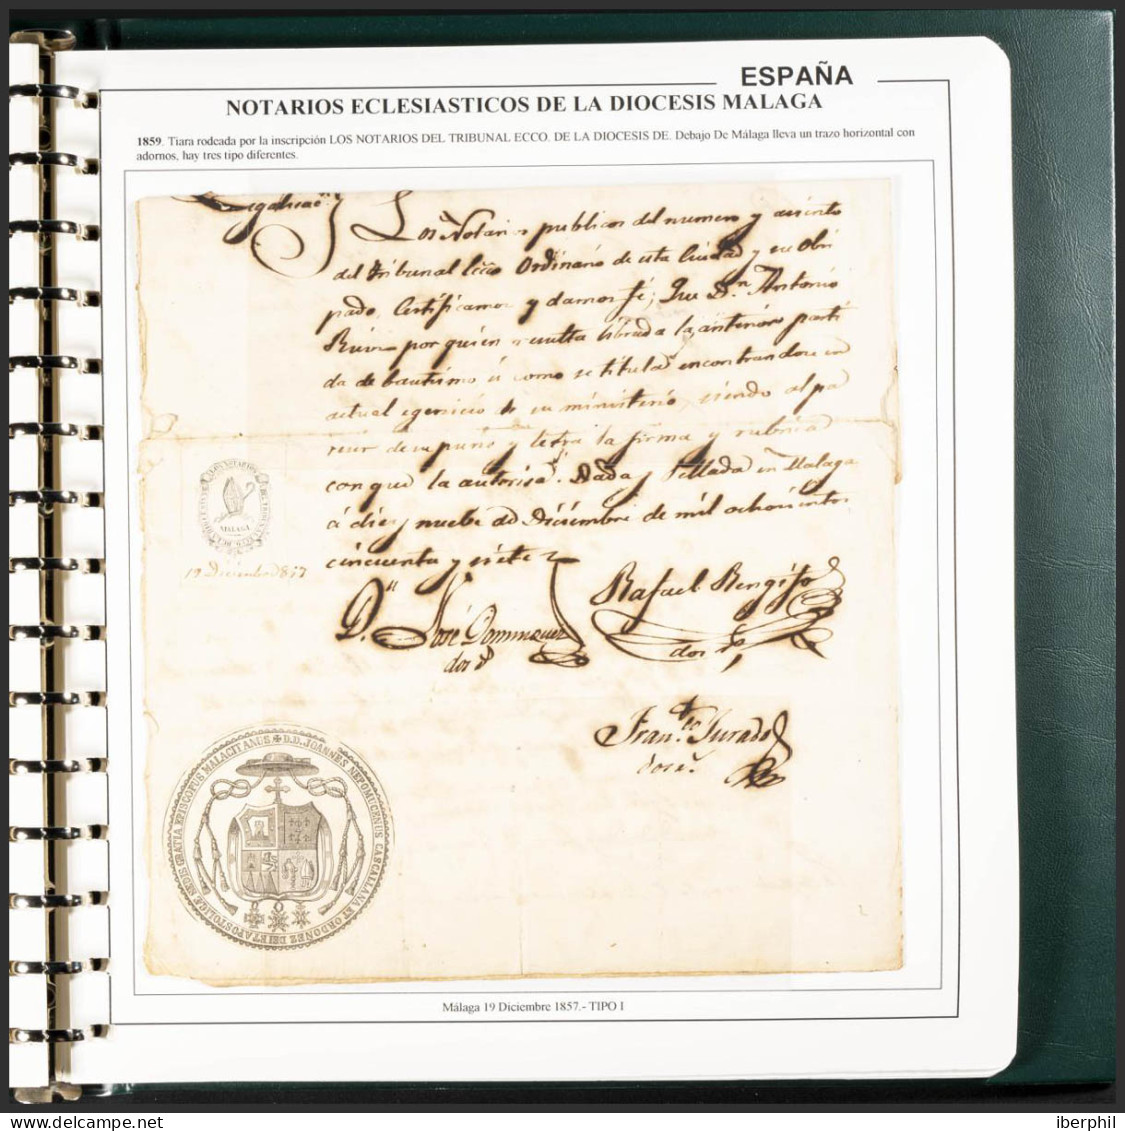 ESPAÑA
NOTARIOS ECLESIASTICOS DE LA DIOCESIS MALAGA
1859. Tiara rodeada por la inscripción LOS NOTARIOS DEL TRIBUNAL ECCO. DE LA DIOCESIS DE. Debajo De Málaga lleva un trazo horizontal con
adornos, hay tres tipo diferentes.
Los Notarios publicos del numero y asiento
del Tribunal Ecco Ordinario de esta Ciudad y su Obis
pado, Certificamos y damos fé; Que Dn. Antonio
por quien resulta librada la anterior parti
da de bautismo és como se titula encontrandose en
actual egercicio de su ministerio, siendo al pa
recer de su puño y letra la firma y rubrica
con que la autorisa. Dada y sellada en Malaga
á diez y nuebe de Diciembre de mil ochocientos
cincuenta y siete
MALAGA
19 Diciembre 857
Rafael Rengifo
Dn. José Dominguez
Franco. Jurado
SEDIS GRATIA EPISCOPUS MALACITANUS ✠ D.D. JOANNES NEPOMUCENUS CASCALLANA ET ORDOÑEZ DEI ET APOSTOLICÆ
Málaga 19 Diciembre 1857.- TIPO I
iberphil